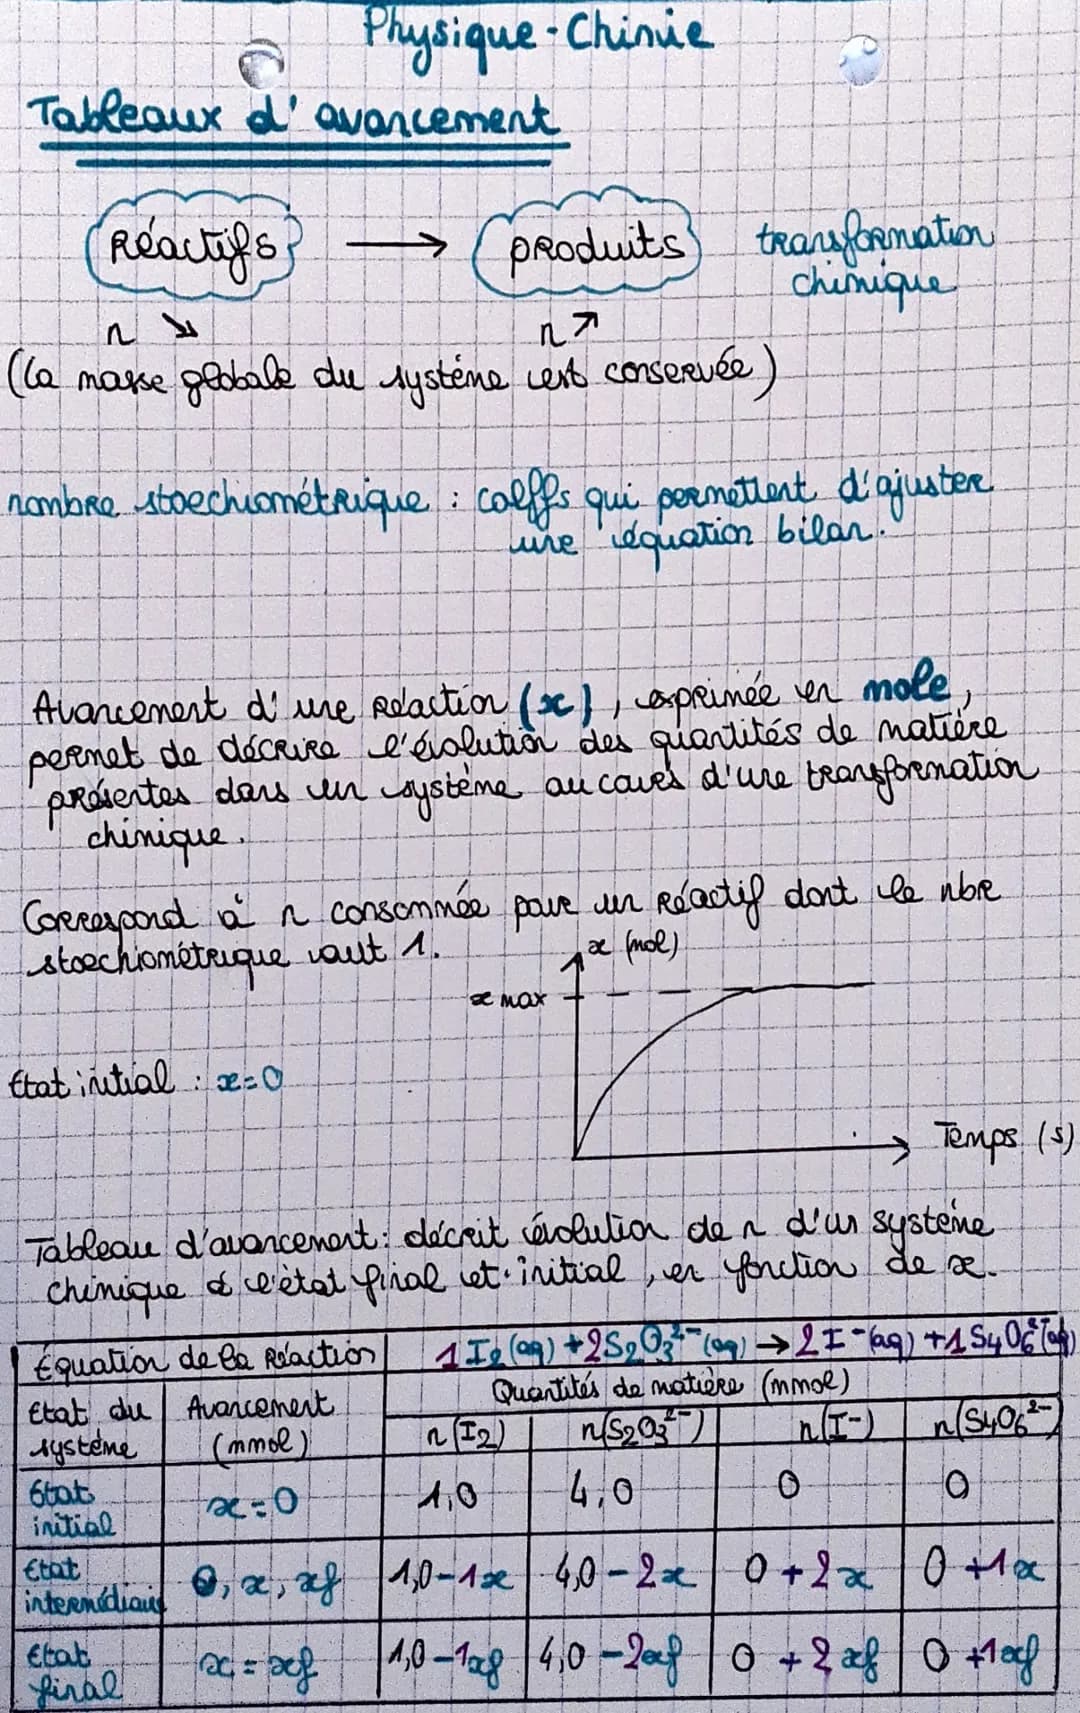 Physique-Chimie
Tableaux d'avancement
Réactifs → produits transformation
chimique
n ↘ n ↗
(la masse globale du système est conservée)
nombre stoechiométrique : coeffs qui permettent d'ajuster
une équation bilan.
Avancement d'une réaction (x), exprimée en mole,
permet de décrire l'évolution des quantités de matière
présentes dans un système au cours d'une transformation
chimique.
Correspond à n consommée pour un réactif dont le nbre
stoechiométrique vaut 1.
x (mol)
x max
Etat initial : x=0
Temps (s)
Tableau d'avancement: décrit évolution de n d'un système
chimique à l'état final et initial, en fonction de x.
Équation de la Réaction 1 I2 (aq) + 2 S2O3²⁻ (aq) → 2 I⁻ (aq) + 1 S4O6²⁻ (aq)
Quantités de matière (mmol)
Etat du système Avancement (mmol) n(I2) n(S2O3²⁻) n(I-) n(S4O6²⁻)
Etat initial x=0 1,0 4,0 0 0
Etat intermédiaire 0, x, xf 1,0-1x 4,0-2x 0+2x 0+1x
Etat final x=xf 1,0-1xf 4,0-2xf 0+2xf 0+1xf